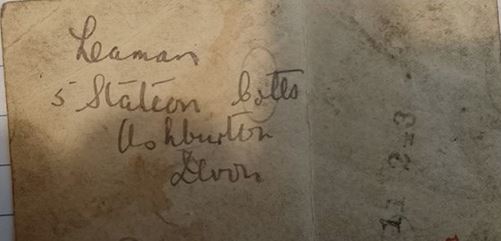 Leaman
5 Station Cotts
Ashburton
Devon
11 2=3